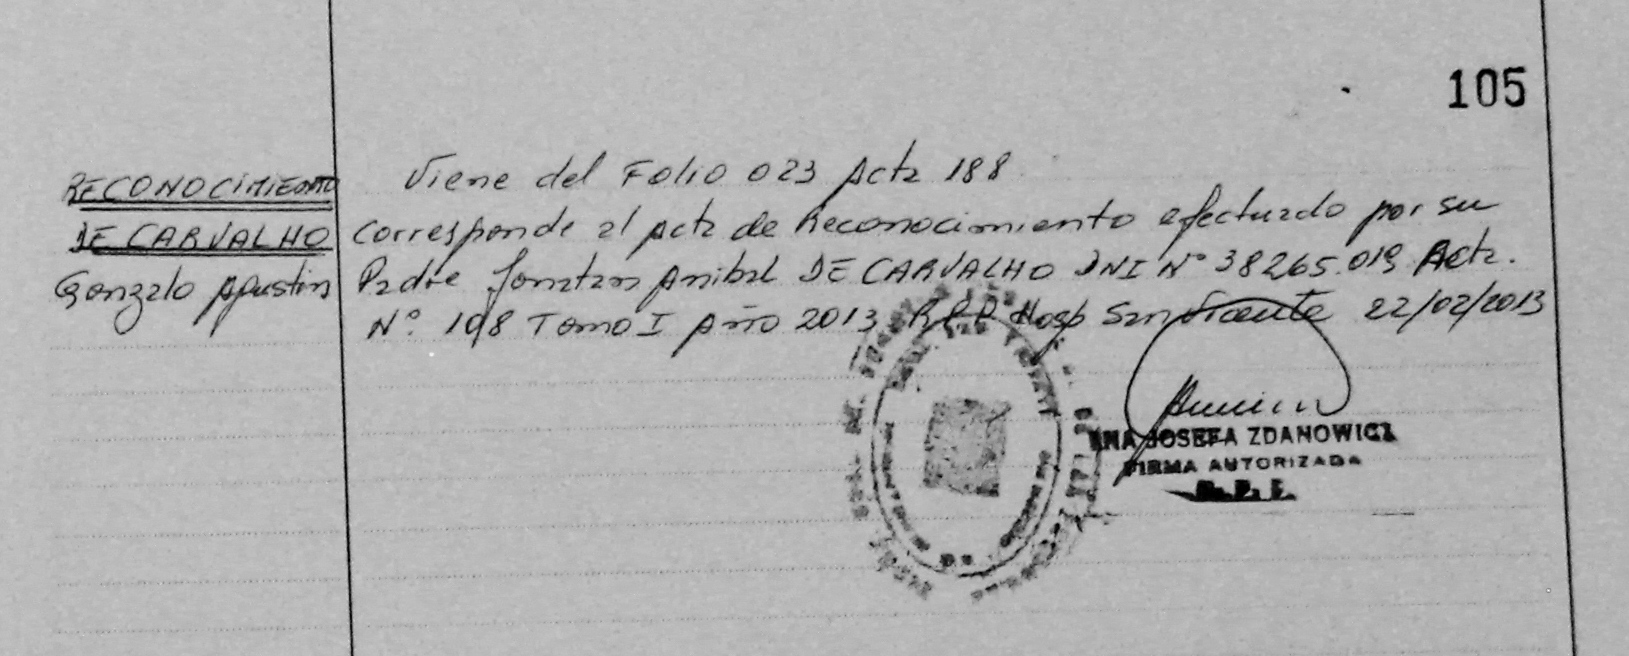 105
RECONOCIMIENTO
DE CARVALHO
Gonzalo Agustin
Viene del Folio 023 Acta 188
Corresponde al Acta de Reconocimiento efectuado por su
Padre Jonatan Anibal DE CARVALHO DNI Nº 38265.019 Acta.
Nº 108 Tomo I Año 2013 Hosp San Vicente 22/02/2013
ANA JOSEFA ZDANOWICZ
FIRMA AUTORIZADA